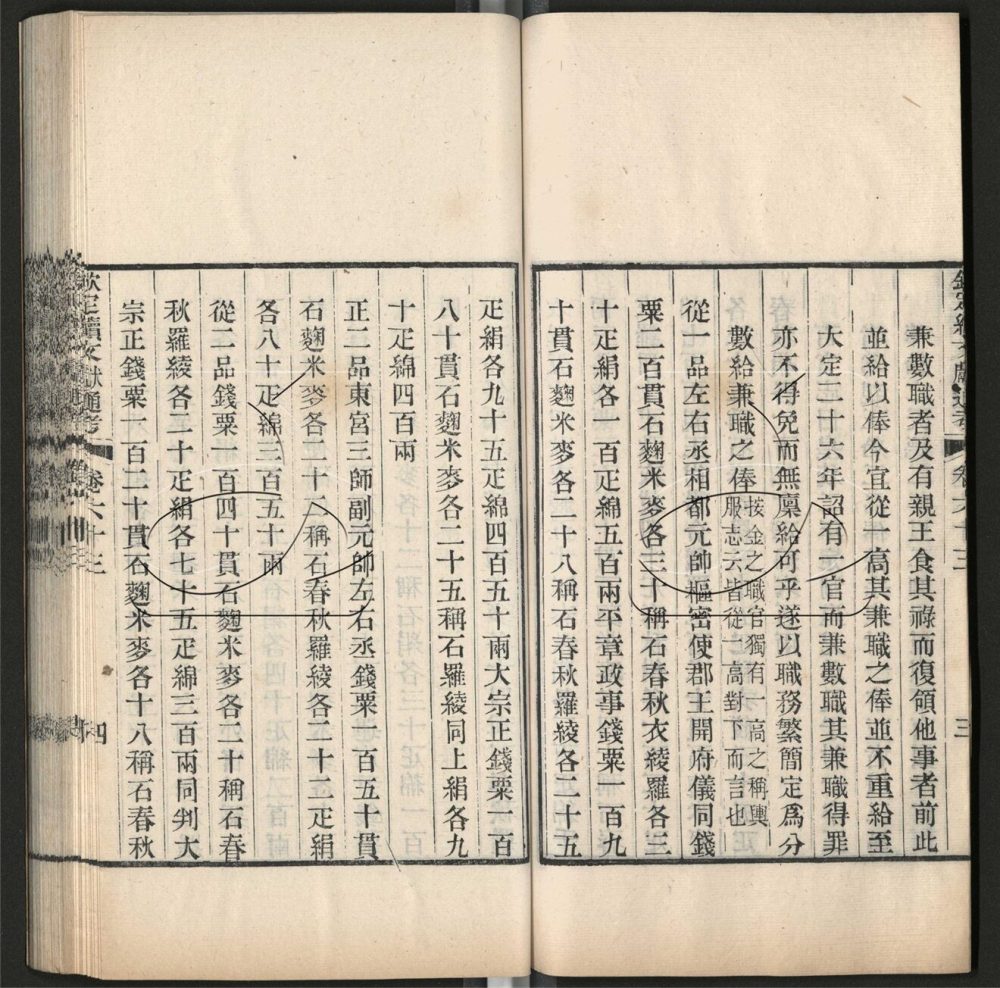 欽定續文獻通考 卷六十三 三
兼數職者及有親王食其祿而復領他事者前此
並給以俸今宜從一高其兼職之俸並不重給至
大定二十六年詔有一官而兼數職其兼職得罪
亦不得免而無廩給可乎遂以職務繁簡定爲分
數給兼職之俸按金之職官獨有一高之稱輿
服志云皆從一高對下而言也
從一品左右丞相都元帥樞密使郡王開府儀同錢
粟二百貫石麴米麥各三十稱石春秋衣綾羅各三
十疋絹各一百疋綿五百兩平章政事錢粟一百九
十貫石麴米麥各二十八稱石春秋羅綾各二十五
疋絹各九十五疋綿四百五十兩大宗正錢粟一百
八十貫石麴米麥各二十五稱石羅綾同上絹各九
十疋綿四百兩
正二品東宮三師副元帥左右丞錢粟一百五十貫
石麴米麥各二十二稱石春秋羅綾各二十二疋絹
各八十疋綿三百五十兩
從二品錢粟一百四十貫石麴米麥各二十稱石春
秋羅綾各二十疋絹各七十五疋綿三百兩同判大
宗正錢粟一百二十貫石麴米麥各十八稱石春秋
欽定續文獻通考 卷六十三 四